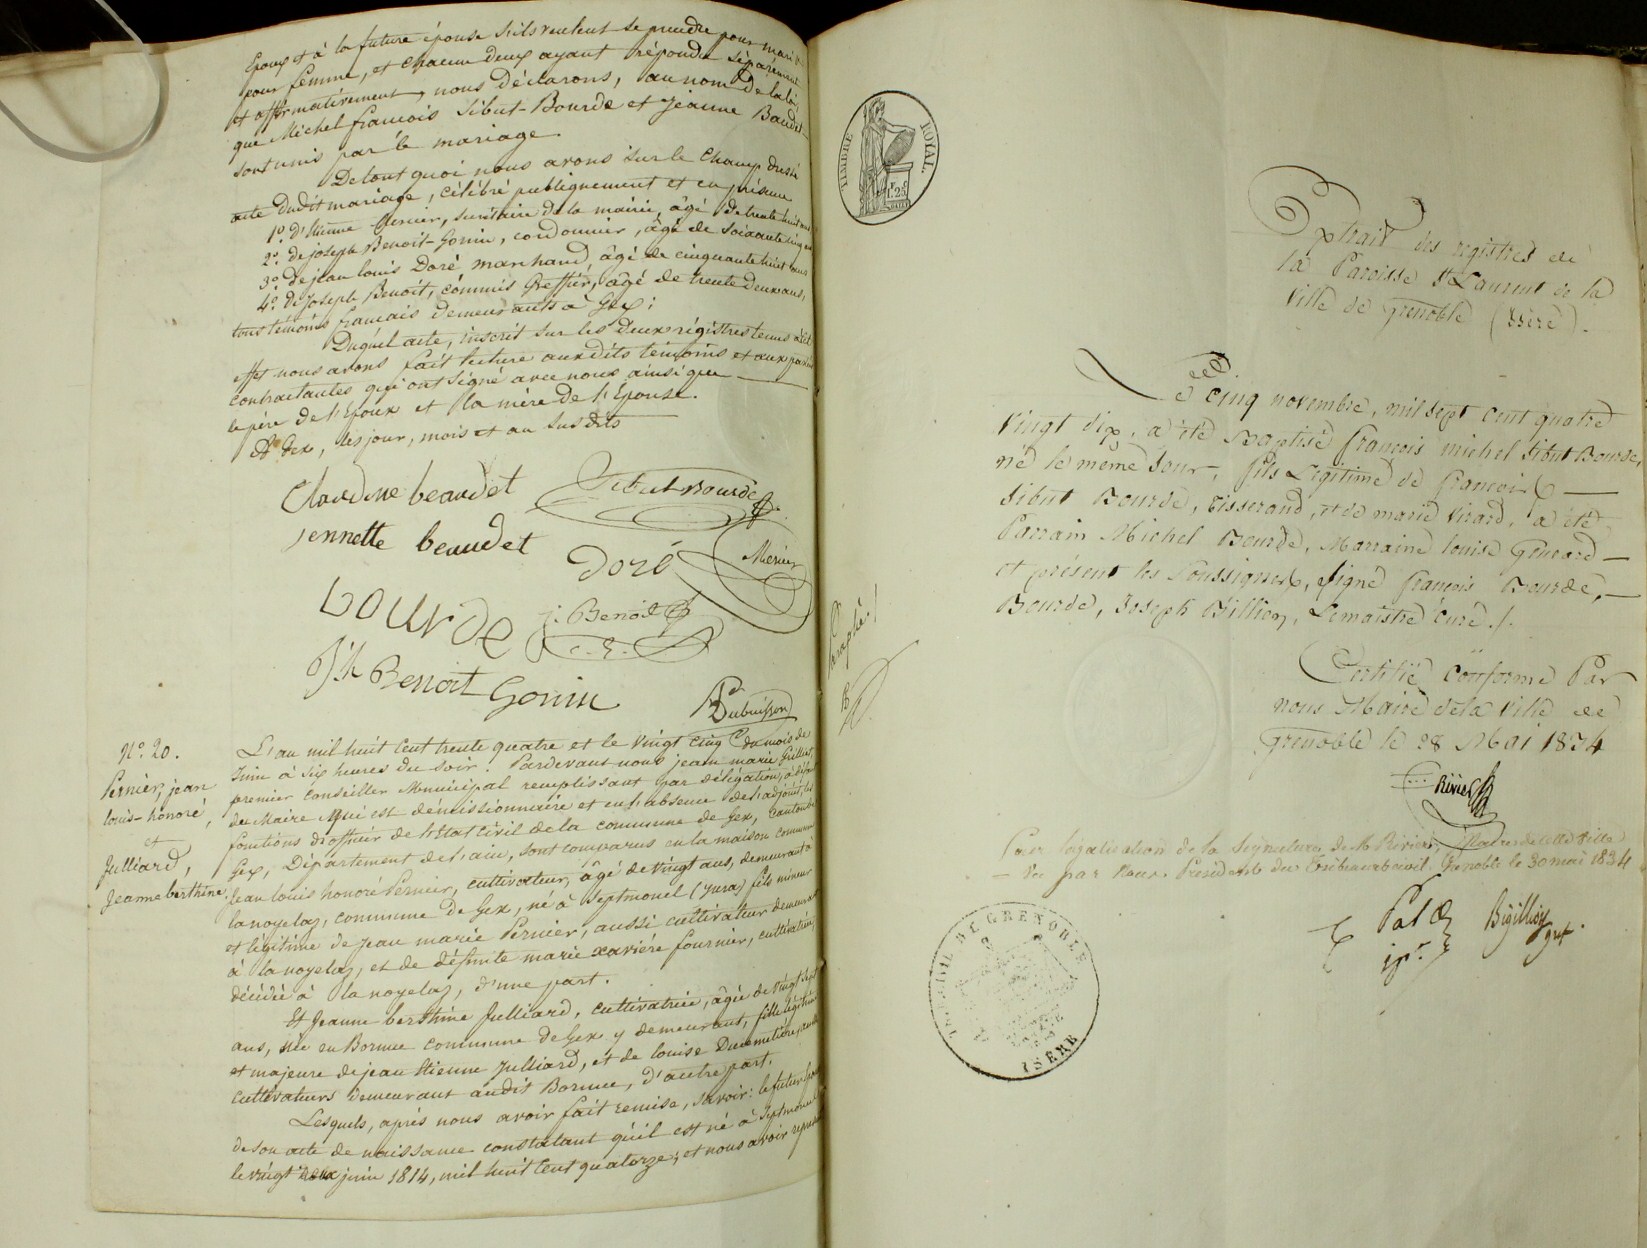 Epoux et à la future épouse s'ils veulent se prendre pour mari et
pour femme, et chacun deux ayant répondu séparément
et affirmativement, nous déclarons, au nom de la loi
que Michel françois Sibut-Bourde et Jeanne Baudet
sont unis par le mariage.
De tout quoi nous avons sur le champ dressé
acte dudit mariage, célébré publiquement et en présence
1º. d'Etienne Mercier, secrétaire de la mairie, âgé de trente huit ans
2º. de joseph Benoit-Gonin, cordonnier, âgé de soixante cinq ans
3º de jean louis Doré, marchand, âgé de cinquante huit ans
4º. de Joseph Benoit, commis Greffier, âgé de trente deux ans,
tous témoins français demeurants à Gex;
Duquel acte, inscrit sur les deux régistres tenus à cet
effet nous avons fait lecture auxdits témoins et aux parties
contractantes qui ont signé avec nous ainsi que
le père de l'Epoux et la mère de l'Epouse.
A Gex, les jour, mois et an susdits
Claudine beaudet
Sibut Bourde
jennette beaudet
Doré
Mercier
Bourde
j. Benoit
Jh Benoit Gonin
Dubuisson
Nº. 20.
Pernier, jean
louis-honoré,
et
Julliard,
Jeanne berthine.
L'an mil huit cent trente quatre et le vingt cinq du mois de
Juin à six heures du soir. Pardevant nous jean marie Grillet
premier conseiller Municipal remplissant par délégation, à défaut
du Maire qui est démissionnaire et en l'absence de l'adjoint, les
fonctions d'officier de l'état civil de la commune de Gex, canton de
Gex, Département de l'ain, sont comparus en la maison commune
Jean louis honoré Pernier, cultivateur, âgé de vingt ans, demeurant à
la noyelaz, commune de Gex, né à Septmoncel (Jura) fils mineur
et légitime de Jean marie Pernier, aussi cultivateur demeurant
à la noyelaz, et de défunte marie xavière fournier, cultivatrice,
décédée à la noyelaz, d'une part.
Et Jeanne berthine Julliard, cultivatrice, âgée de vingt sept
ans, née en Bornue commune de Gex y demeurant, fille légitime
et majeure de jean Etienne Julliard, et de louise Ducimetière, tous deux
cultivateurs demeurant audit Bornue, d'autre part.
Lesquels, après nous avoir fait remise, savoir: le futur Epoux
de son acte de naissance constatant qu'il est né à Septmoncel
le vingt deux juin 1814, mil huit cent quatorze; et nous avoir
TIMBRE ROYAL.
1.25
Extrait des registres de
la Paroisse St. Laurent de la
Ville de Grenoble (Isère).
Le cinq novembre, mil sept cent quatre
vingt dix, a été Baptisé françois michel Sibut Bourde,
né le même Jour, fils Légitime de françois
Sibut Bourde, Tisserand, et de marie Virard, a été
Parrain Michel Bourde, Marraine louise Gimard
et présent les Soussignés, signé françois Bourde,
Bourde, Joseph Billion, Lemaistre curé./.
Paraphé:/
Certifié conforme Par
nous Maire de la Ville de
Grenoble le 28 Mai 1834
Rivier
Pour légalisation de la signature de Mr Rivier, Maire de cette Ville
Vu par Nous Président du Tribunal civil, Grenoble le 30 mai 1834
Bigillion
DE GRENOBLE
ISÈRE